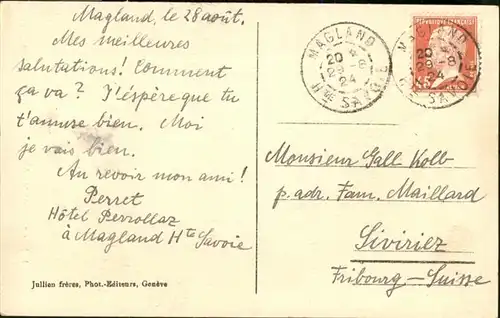 Magland, le 28 août.
Mes meilleures
salutations! Comment
ça va? J'éspère que tu
t'amuse bien. Moi
je vais bien.
Au revoir mon ami!
Perret
Hôtel Perrollaz
à Magland Hte Savoie
Jullien frères, Phot.-Editeurs, Genève
MAGLAND
20
29-8
24
Hte SAVOIE
REPUBLIQUE FRANÇAISE
MAGLAND
20
29-8
24
SAVOIE
Monsieur Gall Kolb
p. adr. Fam. Maillard
Siviriez
Fribourg-Suisse